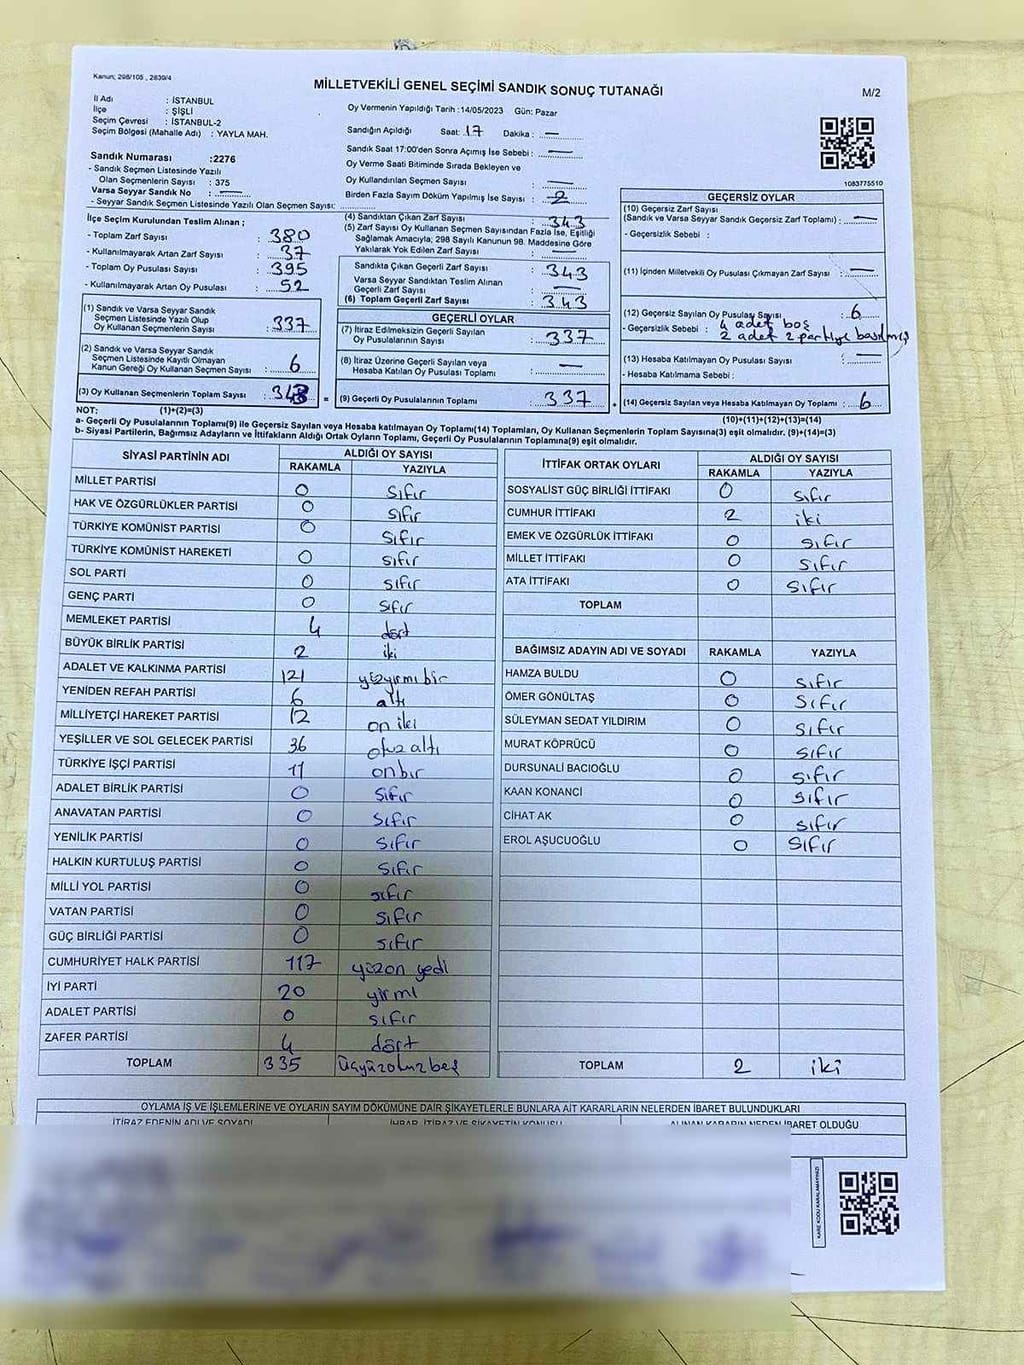 Kanun; 298/105 , 2839/4
MİLLETVEKİLİ GENEL SEÇİMİ SANDIK SONUÇ TUTANAĞI
M/2
İl Adı : İSTANBUL
İlçe : ŞİŞLİ
Seçim Çevresi : İSTANBUL-2
Seçim Bölgesi (Mahalle Adı) : YAYLA MAH.
Sandık Numarası :2276
- Sandık Seçmen Listesinde Yazılı
Olan Seçmenlerin Sayısı : 375
Varsa Seyyar Sandık No : —
- Seyyar Sandık Seçmen Listesinde Yazılı Olan Seçmen Sayısı:
Oy Vermenin Yapıldığı Tarih :14/05/2023 Gün: Pazar
Sandığın Açıldığı Saat: 17 Dakika : —
Sandık Saat 17:00'den Sonra Açımış İse Sebebi : —
Oy Verme Saati Bitiminde Sırada Bekleyen ve
Oy Kullandırılan Seçmen Sayısı : —
Birden Fazla Sayım Döküm Yapılmış İse Sayısı : 2
1083775510
İlçe Seçim Kurulundan Teslim Alınan ;
- Toplam Zarf Sayısı : 380
- Kullanılmayarak Artan Zarf Sayısı : 37
- Toplam Oy Pusulası Sayısı : 395
- Kullanılmayarak Artan Oy Pusulası : 52
(1) Sandık ve Varsa Seyyar Sandık
Seçmen Listesinde Yazılı Olup
Oy Kullanan Seçmenlerin Sayısı : 337
(2) Sandık ve Varsa Seyyar Sandık
Seçmen Listesinde Kayıtlı Olmayan
Kanun Gereği Oy Kullanan Seçmen Sayısı : 6
(3) Oy Kullanan Seçmenlerin Toplam Sayısı : 343 =
(4) Sandıktan Çıkan Zarf Sayısı : 343
(5) Zarf Sayısı Oy Kullanan Seçmen Sayısından Fazla İse, Eşitliği
Sağlamak Amacıyla; 298 Sayılı Kanunun 98. Maddesine Göre
Yakılarak Yok Edilen Zarf Sayısı : —
Sandıkta Çıkan Geçerli Zarf Sayısı : 343
Varsa Seyyar Sandıktan Teslim Alınan
Geçerli Zarf Sayısı : —
(6) Toplam Geçerli Zarf Sayısı : 343
GEÇERLİ OYLAR
(7) İtiraz Edilmeksizin Geçerli Sayılan
Oy Pusulalarının Sayısı : 337
(8) İtiraz Üzerine Geçerli Sayılan veya
Hesaba Katılan Oy Pusulası Toplamı : —
(9) Geçerli Oy Pusulalarının Toplamı : 337
GEÇERSİZ OYLAR
(10) Geçersiz Zarf Sayısı
(Sandık ve Varsa Seyyar Sandık Geçersiz Zarf Toplamı) : —
- Geçersizlik Sebebi :
(11) İçinden Milletvekili Oy Pusulası Çıkmayan Zarf Sayısı : —
(12) Geçersiz Sayılan Oy Pusulası Sayısı : 6
- Geçersizlik Sebebi : 4 adet boş
2 adet 2 partiye basılmış
(13) Hesaba Katılmayan Oy Pusulası Sayısı : —
- Hesaba Katılmama Sebebi :
(14) Geçersiz Sayılan veya Hesaba Katılmayan Oy Toplamı : 6
NOT: (1)+(2)=(3)
(10)+(11)+(12)+(13)=(14)
a- Geçerli Oy Pusulalarının Toplamı(9) ile Geçersiz Sayılan veya Hesaba katılmayan Oy Toplamı(14) Toplamları, Oy Kullanan Seçmenlerin Toplam Sayısına(3) eşit olmalıdır. (9)+(14)=(3)
b- Siyasi Partilerin, Bağımsız Adayların ve İttifakların Aldığı Ortak Oyların Toplamı, Geçerli Oy Pusulalarının Toplamına(9) eşit olmalıdır.
SİYASİ PARTİNİN ADI ALDIĞI OY SAYISI
RAKAMLA YAZIYLA
MİLLET PARTİSİ 0 Sıfır
HAK VE ÖZGÜRLÜKLER PARTİSİ 0 Sıfır
TÜRKİYE KOMÜNİST PARTİSİ 0 Sıfır
TÜRKİYE KOMÜNİST HAREKETİ 0 Sıfır
SOL PARTİ 0 Sıfır
GENÇ PARTİ 0 Sıfır
MEMLEKET PARTİSİ 4 dört
BÜYÜK BİRLİK PARTİSİ 2 iki
ADALET VE KALKINMA PARTİSİ 121 yüzyirmibir
YENİDEN REFAH PARTİSİ 6 altı
MİLLİYETÇİ HAREKET PARTİSİ 12 on iki
YEŞİLLER VE SOL GELECEK PARTİSİ 36 otuz altı
TÜRKİYE İŞÇİ PARTİSİ 11 onbir
ADALET BİRLİK PARTİSİ 0 Sıfır
ANAVATAN PARTİSİ 0 Sıfır
YENİLİK PARTİSİ 0 Sıfır
HALKIN KURTULUŞ PARTİSİ 0 Sıfır
MİLLİ YOL PARTİSİ 0 sıfır
VATAN PARTİSİ 0 sıfır
GÜÇ BİRLİĞİ PARTİSİ 0 sıfır
CUMHURİYET HALK PARTİSİ 117 yüzon yedi
İYİ PARTİ 20 yirmi
ADALET PARTİSİ 0 sıfır
ZAFER PARTİSİ 4 dört
TOPLAM 335 üçyüzotuzbeş
İTTİFAK ORTAK OYLARI ALDIĞI OY SAYISI
RAKAMLA YAZIYLA
SOSYALİST GÜÇ BİRLİĞİ İTTİFAKI 0 sıfır
CUMHUR İTTİFAKI 2 iki
EMEK VE ÖZGÜRLÜK İTTİFAKI 0 sıfır
MİLLET İTTİFAKI 0 sıfır
ATA İTTİFAKI 0 sıfır
TOPLAM
BAĞIMSIZ ADAYIN ADI VE SOYADI RAKAMLA YAZIYLA
HAMZA BULDU 0 sıfır
ÖMER GÖNÜLTAŞ 0 sıfır
SÜLEYMAN SEDAT YILDIRIM 0 sıfır
MURAT KÖPRÜCÜ 0 sıfır
DURSUNALİ BACIOĞLU 0 sıfır
KAAN KONANCİ 0 sıfır
CİHAT AK 0 sıfır
EROL AŞUCUOĞLU 0 sıfır
TOPLAM 2 iki
OYLAMA İŞ VE İŞLEMLERİNE VE OYLARIN SAYIM DÖKÜMÜNE DAİR ŞİKAYETLERLE BUNLARA AİT KARARLARIN NELERDEN İBARET BULUNDUKLARI
İTİRAZ EDENİN ADI VE SOYADI İHBAR, İTİRAZ VE ŞİKAYETİN KONUSU ALINAN KARARIN NEDEN İBARET OLDUĞU
KARE KODU KARALAMAYINIZ!